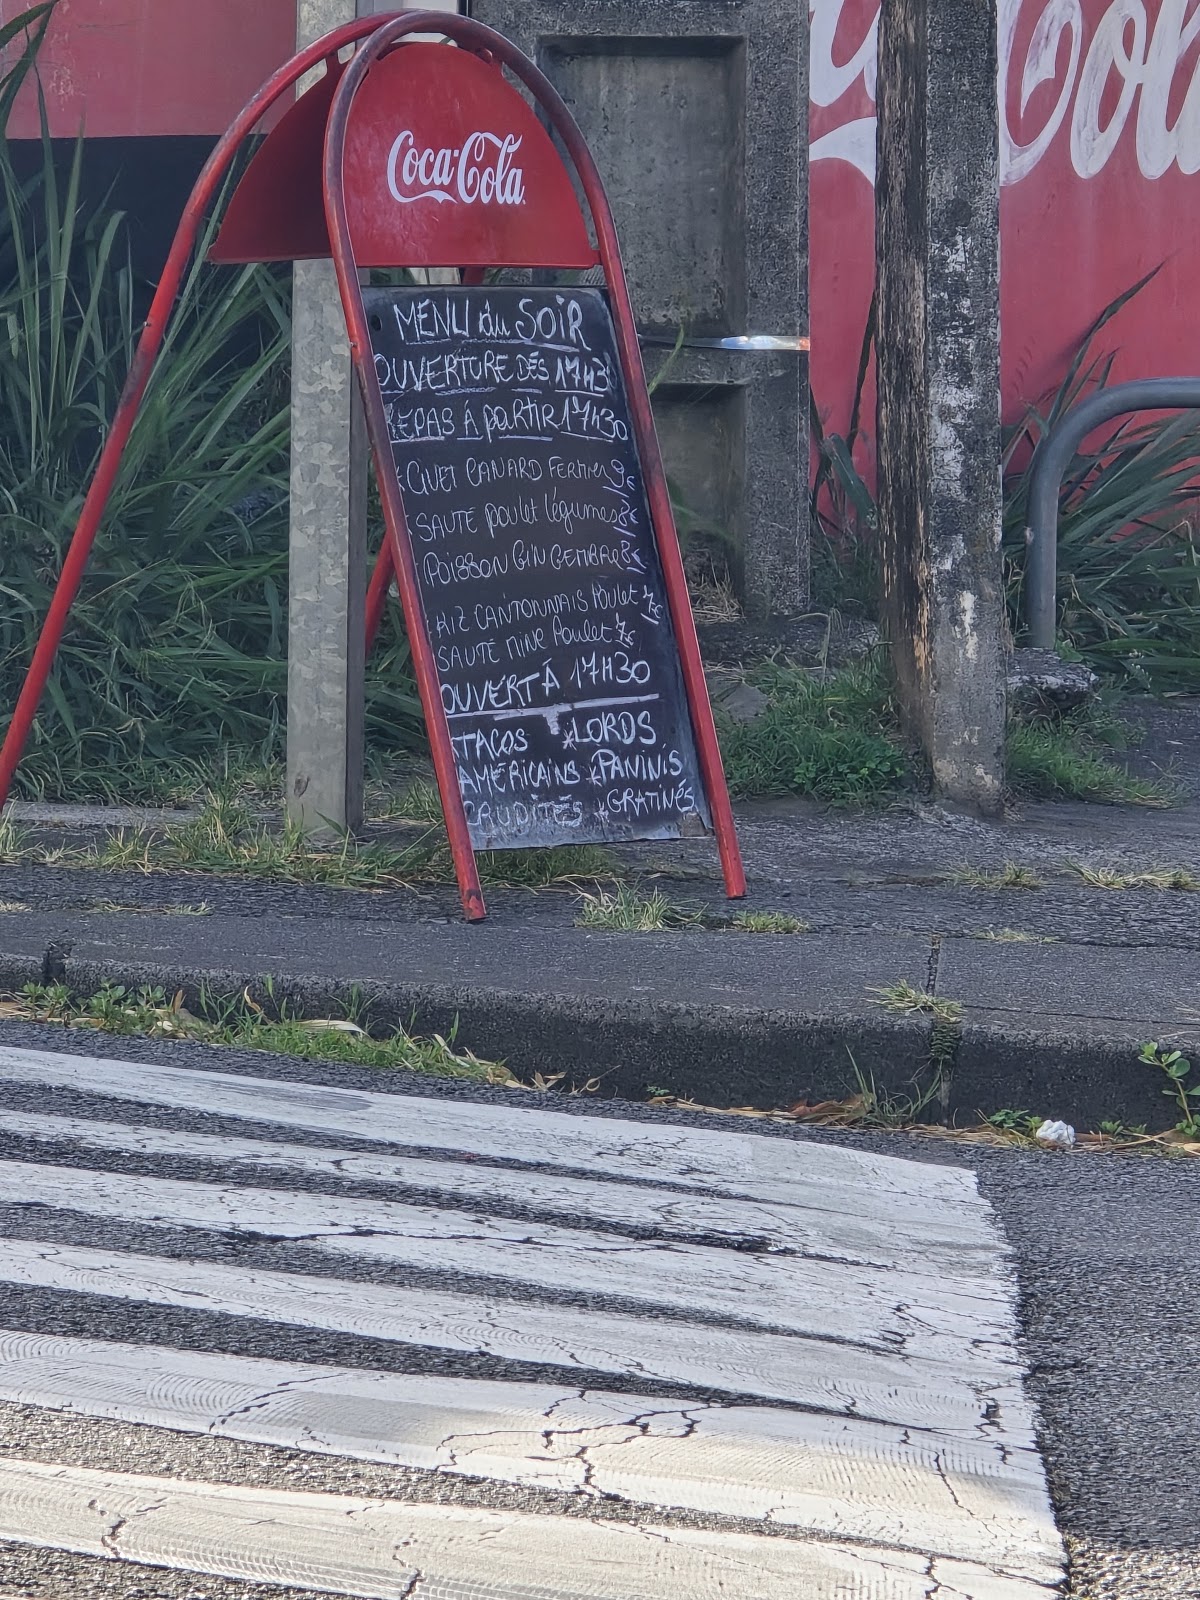 Coca-Cola
Cola
MENU du SOIR
OUVERTURE DÈS 17H3
REPAS À partir 17h30
* CIVET CANARD FERMIER 9€
* SAUTE poulet légumes 8€
POISSON GINGEMBRE 8€
RIZ CANTONNAIS Poulet 7€
SAUTE MINE Poulet 7€
OUVERT À 17H30
*TACOS *LORDS
AMÉRICAINS *PANINIS
CRUDITÉS *GRATINÉS